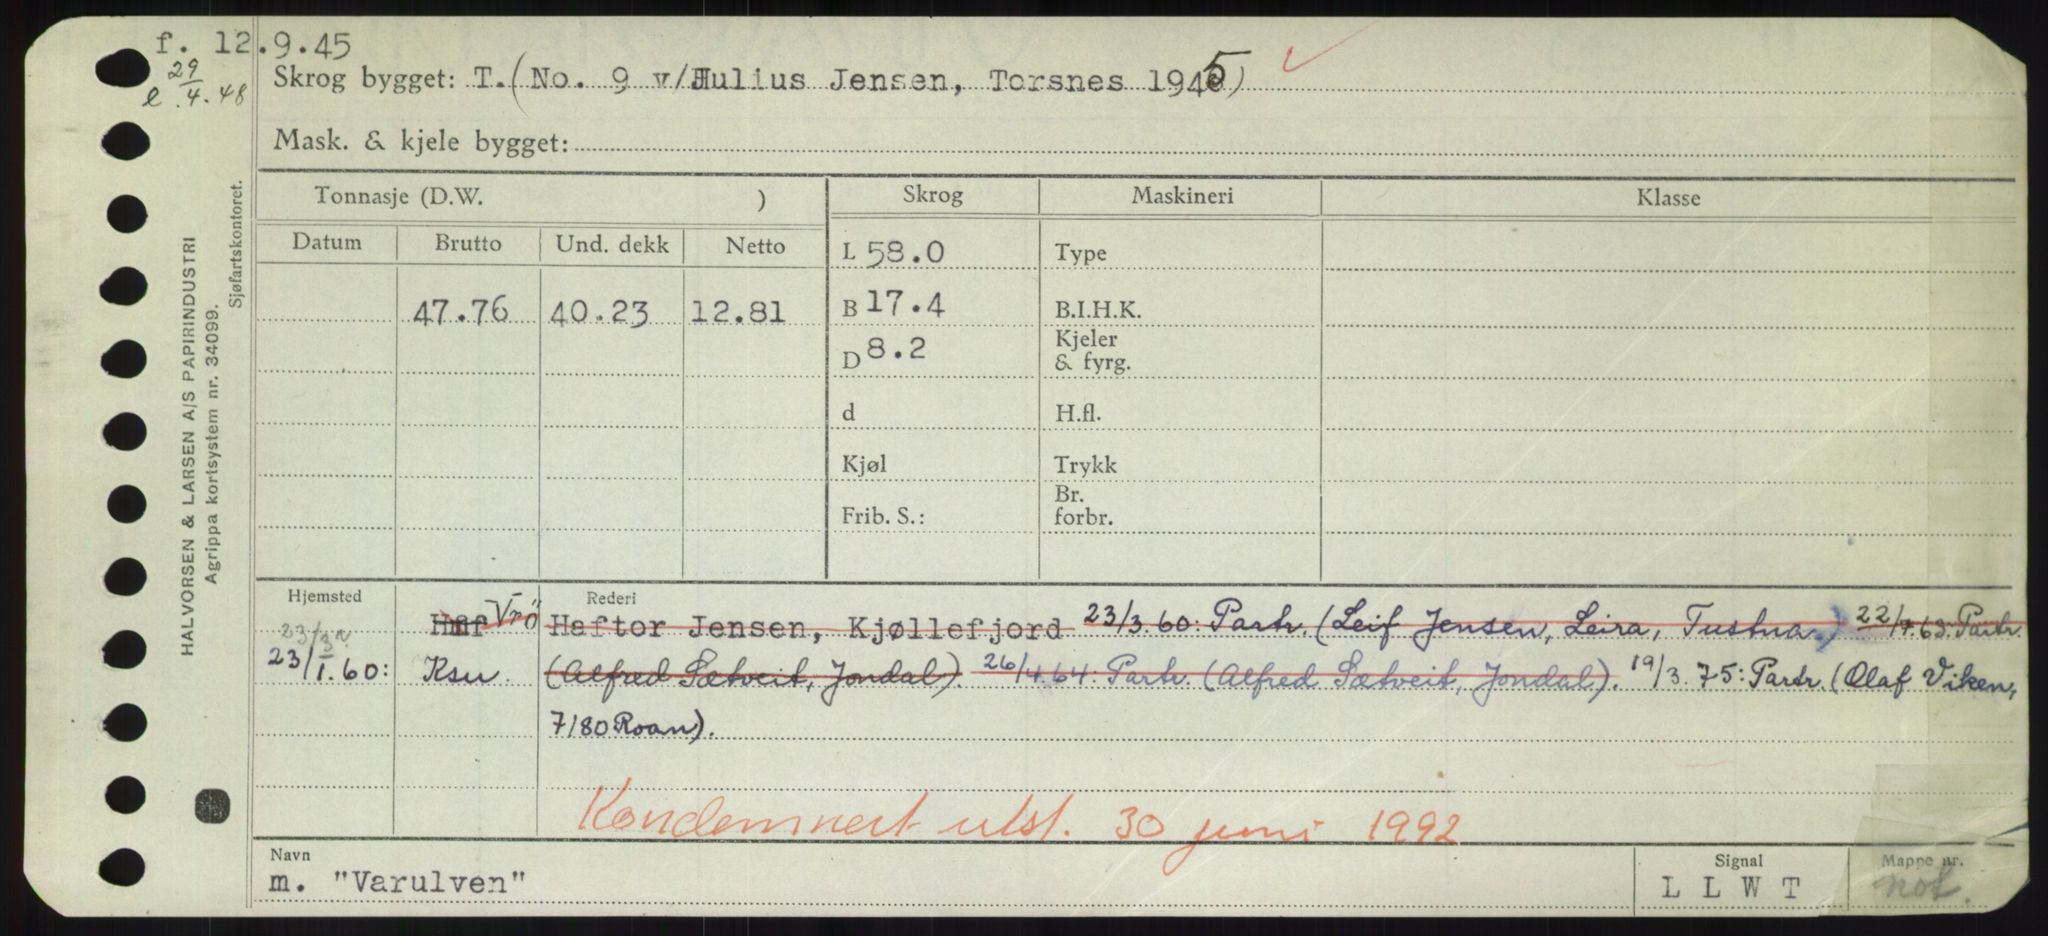 f. 12.9.45
29/4.48
Skrog bygget: T. (No. 9 v/Julius Jensen, Torsnes 1945)
Mask. & kjele bygget:
HALVORSEN & LARSEN A/S PAPIRINDUSTRI
Agrippa kortsystem nr. 34099.
Sjøfartskontoret.
Tonnasje (D.W. ) Skrog Maskineri Klasse
Datum Brutto Und. dekk Netto L 58.0 Type
47.76 40.23 12.81 B 17.4 B.I.H.K.
D 8.2 Kjeler & fyrg.
d H.fl.
Kjøl Trykk
Frib. S.: Br. forbr.
Hjemsted Rederi
Vrö Haftor Jensen, Kjøllefjord 23/3.60: Partr. (Leif Jensen, Leira, Tustna) 22/4.63: Partr.
23/1.60: Ksu. (Alfred Sætveit, Jondal). 26/4.64: Partr. (Alfred Sætveit, Jondal). 19/3.75: Partr. (Olaf Viken,
7180 Roan).
Kondemnert utst. 30 juni 1992
Navn Signal Mappe nr.
m. "Varulven" L L W T not.